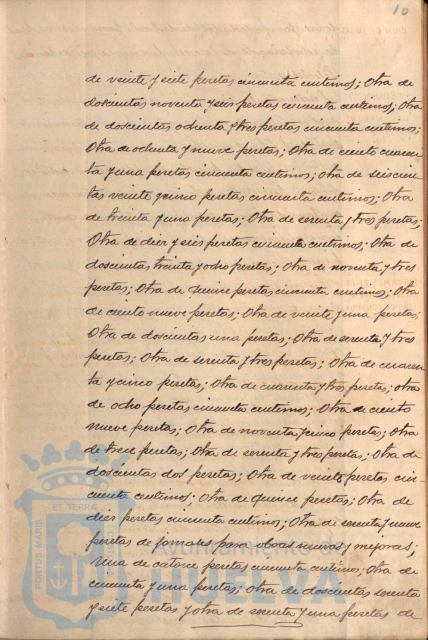 10
de veinte y siete pesetas cincuenta centimos; Otra de
doscientas noventa y seis pesetas cincuenta centimos; Otra
de doscientas ochenta y tres pesetas cincuenta centimos;
Otra de ochenta y nueve pesetas; Otra de ciento cuaren-
ta y una pesetas cincuenta centimos; Otra de seiscien-
tas veinte y cinco pesetas cincuenta centimos; Otra
de treinta y una pesetas; Otra de y tres pesetas;
Otra de diez y seis pesetas cincuenta centimos; Otra de
doscientas treinta y ocho pesetas; Otra de noventa y tres
pesetas; Otra de quince pesetas cincuenta centimos; Otra
de ciento nueve pesetas; Otra de veinte y una pesetas;
Otra de doscientas una pesetas; Otra de y tres
pesetas; Otra de y tres pesetas; Otra de cuaren-
ta y cinco pesetas; Otra de cuarenta y tres pesetas; otra
de ocho pesetas cincuenta centimos; Otra de ciento
nueve pesetas; Otra de noventa y cinco pesetas; Otra
de trece pesetas; Otra de y tres pesetas; Otra de
doscientas dos pesetas; Otra de veinte pesetas cin-
cuenta centimos; Otra de quince pesetas; Otra de
diez pesetas cincuenta centimos; Otra de y nueve
pesetas de jornales para obras nuevas y mejoras;
Una de catorce pesetas cincuenta centimos; Otra de
cincuenta y una pesetas; Otra de doscientas
y siete pesetas y otra de y una pesetas de
PORTUS MARIS ET TERRAE
Ayuntamiento de
HUELVA